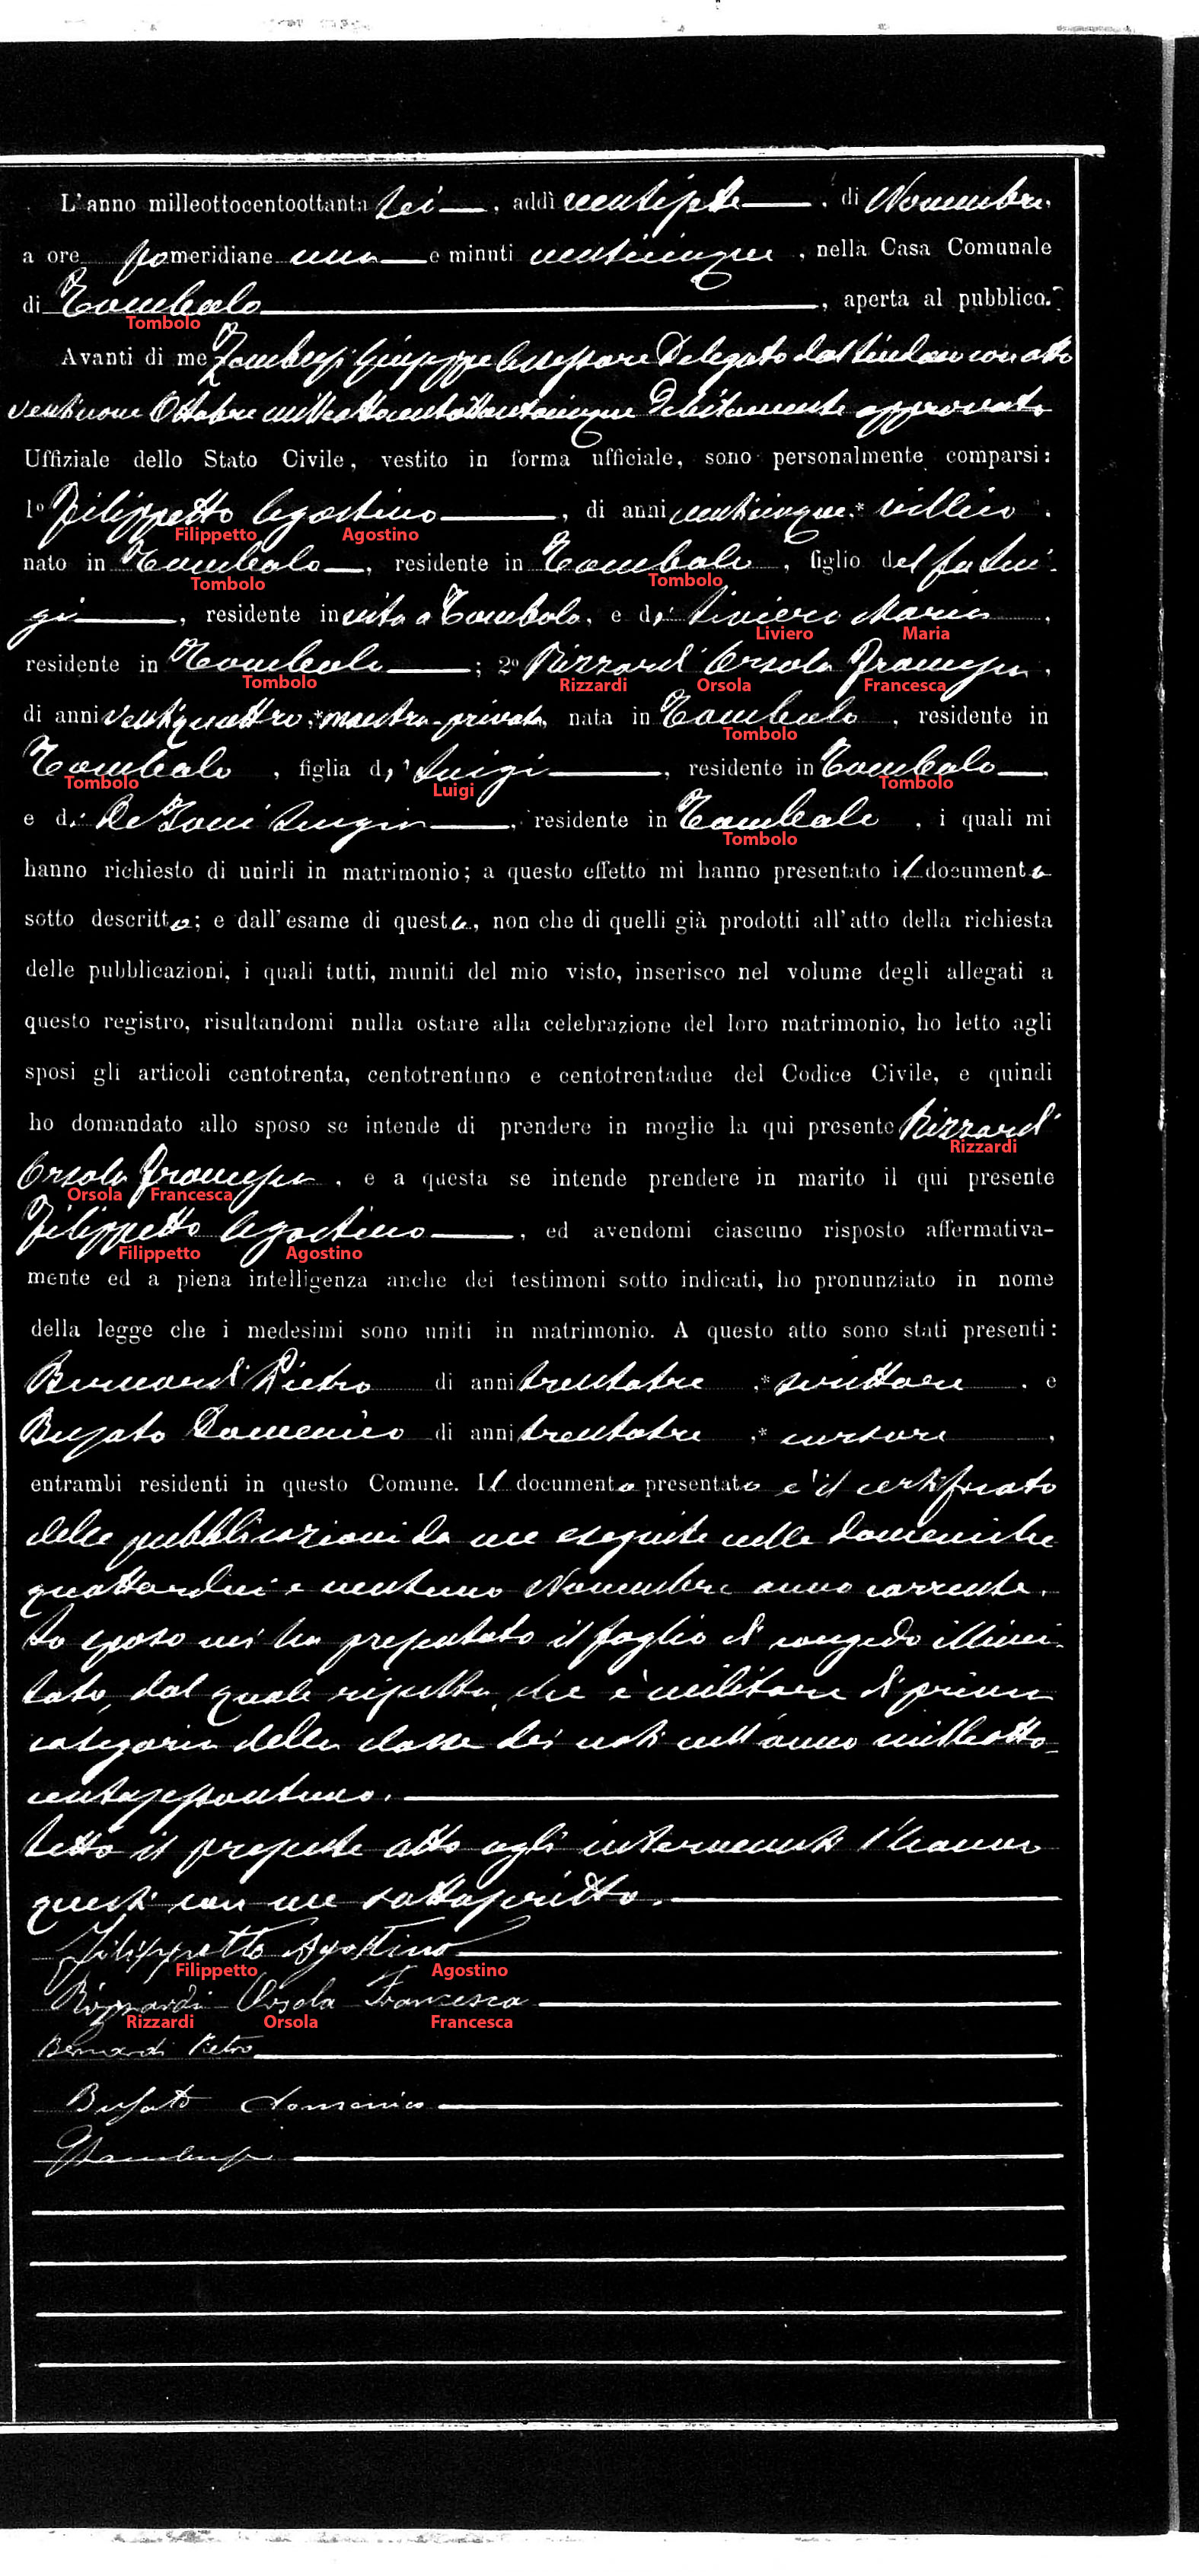 L'anno milleottocentoottanta sei, addì ventisette, di Novembre,
a ore pomeridiane una e minuti venticinque, nella Casa Comunale
di Tombolo, aperta al pubblico.
Tombolo
Avanti di me Zambusi Giuseppe Assessore Delegato dal Sindaco con atto
ventinove Ottobre milleottocentottantacinque debitamente approvato
Uffiziale dello Stato Civile, vestito in forma ufficiale, sono personalmente comparsi:
1º Filippetto Agostino, di anni venticinque,* villico,
Filippetto Agostino
nato in Tombolo, residente in Tombolo, figlio del fu Lui-
Tombolo Tombolo
gi, residente in vita a Tombolo, e di Liviero Maria,
Liviero Maria
residente in Tombolo; 2º Rizzardi Orsola Francesca,
Tombolo Rizzardi Orsola Francesca
di anni ventiquattro,* maestra privata, nata in Tombolo, residente in
Tombolo
Tombolo, figlia di Luigi, residente in Tombolo,
Tombolo Luigi Tombolo
e di De Zoni Luigia, residente in Tombolo, i quali mi
Tombolo
hanno richiesto di unirli in matrimonio; a questo effetto mi hanno presentato il documento
sotto descritto; e dall'esame di questo, non che di quelli già prodotti all'atto della richiesta
delle pubblicazioni, i quali tutti, muniti del mio visto, inserisco nel volume degli allegati a
questo registro, risultandomi nulla ostare alla celebrazione del loro matrimonio, ho letto agli
sposi gli articoli centotrenta, centotrentuno e centotrentadue del Codice Civile, e quindi
ho domandato allo sposo se intende di prendere in moglie la qui presente Rizzardi
Rizzardi
Orsola Francesca, e a questa se intende prendere in marito il qui presente
Orsola Francesca
Filippetto Agostino, ed avendomi ciascuno risposto affermativa-
Filippetto Agostino
mente ed a piena intelligenza anche dei testimoni sotto indicati, ho pronunziato in nome
della legge che i medesimi sono uniti in matrimonio. A questo atto sono stati presenti:
Bernardi Pietro di anni trentatre,* scrittore, e
Busato Domenico di anni trentatre,* cursore,
entrambi residenti in questo Comune. Il documento presentato è il certificato
delle pubblicazioni da me eseguite nelle domeniche
quattordici e ventuno Novembre anno corrente.
Lo sposo mi ha presentato il foglio di congedo illimi-
tato, dal quale risulta, che è militare di prima
categoria della classe dei nati nell'anno milleotto-
centosessantuno.
Letto il presente atto agli intervenuti l'hanno
questi con me sottoscritto.
Filippetto Agostino
Filippetto Agostino
Rizzardi Orsola Francesca
Rizzardi Orsola Francesca
Bernardi Pietro
Busato Domenico
GZambusi